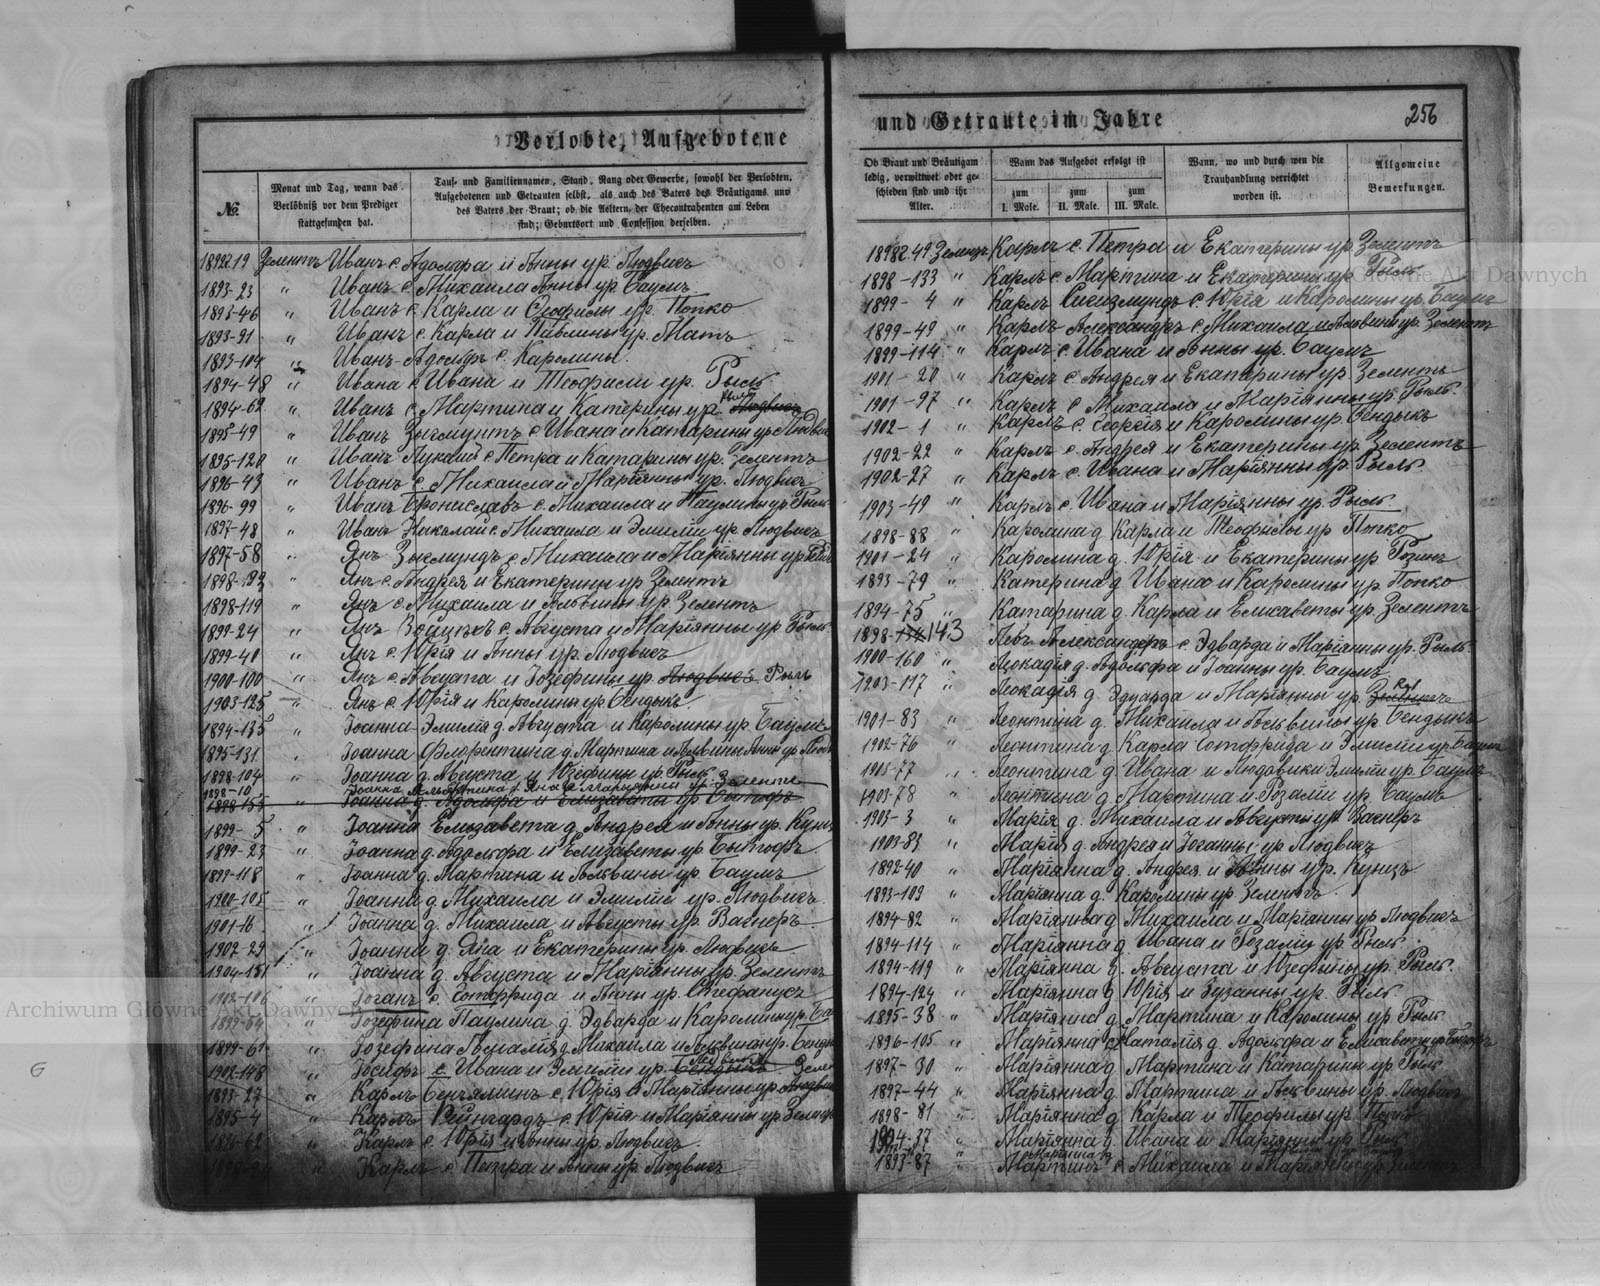 Verlobte, Aufgebotene
№
Monat und Tag, wann das
Verlöbniß vor dem Prediger
stattgefunden hat.
Tauf- und Familiennamen, Stand, Rang oder Gewerbe, sowohl der Verlobten,
Aufgebotenen und Getrauten selbst, als auch des Vaters des Bräutigams und
des Vaters der Braut; ob die Aeltern der Ehecontrahenten am Leben
sind; Geburtsort und Confession derselben.
Зелентъ Иванъ с Адольфа и Анны ур. Людвигъ
1893-23 " Иванъ с. Михаила Анны ур Баумъ
1893-46 " Иванъ с. Карла и Теофилы ур. Попко
1893-91 " Иванъ с. Карла и Павлины ур. Матъ
1893-104 " Иванъ-Адольфъ с. Каролины.
1894-48 " Ивана с Ивана и Теофили ур. Рыль
1894-62 " Иванъ с. Мартина и Катерины ур. Людвигъ
1895-49 " Иванъ Зыгмунтъ с Ивана и Катарины ур Людвигъ
1895-120 " Иванъ Лукаш с Петра и Катарины ур. Зелентъ
1896-43 " Иванъ с. Михаила и Маріянны ур. Людвигъ
1896-99 " Иванъ Брониславъ с. Михаила и Паулины ур Рыль
1897-48 " Иванъ Николай с. Михаила и Эмиліи ур Людвигъ
1897-58 " Янъ Зыгмундъ с Михаила и Маріянны ур
" Янъ с. Андрея и Екатерины ур Зелентъ
1898-119 " Янъ с. Михаила и Альвины ур. Зелентъ
1899-24 " Янъ с. Августа и Маріянны ур Рыль
1899-40 " Янъ с. Юрія и Анны ур. Людвигъ
1900-100 " Янъ с. Августа и Іозефины ур. Людвигъ Рыль
1903-125 " Янъ с. Юрія и Каролины ур Бендыкъ
1894-135 " Іоанна-Эмилія д. Августа и Каролины ур Баумъ
1895-131 " Іоанна Флорентина д. Мартина и
1898-104 " Іоанна д. Августа и Юзефины ур Рыль
1898-10 Іоанна Альбертина д Яна и Маріянны ур Зелентъ
1898-155 " Іоанна д. Адольфа и Елизаветы ур Бытофъ
1899-5 " Іоанна Елизавета д. Андрея и Анны ур. Кунцъ
1899-23 " Іоанна д. Адольфа и Елизаветы ур Бытофъ
1899-118 " Іоанна д. Мартина и Альвины ур. Баумъ
1900-105 " Іоанна д Михаила и Эмиліи ур. Людвигъ
1901-16 " Іоанна д. Михаила и Августы ур. Вагнеръ
1902-29 " Іоанна д. Яна и Екатерины ур. Людвигъ
1904-151 " Іоанна д. Августа и Маріянны ур. Зелентъ
1902-106 " Іоганъ с. Готфрида и Анны ур. Стефанусъ
1899-54 " Іозефина Паулина д. Эдварда и Каролины ур. Ба
1899-61 " Іозефина Розалія д. Михаила и Альвины ур. Бенды
1902-148 " Іосифъ с. Ивана и Эмиліи ур. Бендыкъ Людвигъ
1893-27 " Карлъ Беньяминъ с. Юрія и Маріянны ур Людвигъ
1895-4 " Карлъ Рейнгардъ с. Юрія и Маріянны ур Зелентъ
1896-62 " Карлъ с. Юрія и Анны ур. Людвигъ
" Карлъ с. Петра и Анны ур Людвигъ
und Getraute im Jahre
256
Ob Braut und Bräutigam
ledig, verwittwet oder ge-
schieden sind und ihr
Alter.
Wann das Aufgebot erfolgt ist
zum
I. Male.
zum
II. Male.
zum
III. Male.
Wann, wo und durch wen die
Trauhandlung verrichtet
worden ist.
Allgemeine
Bemerkungen.
Карлъ с. Петра и Екатерины ур. Зелентъ
1898-133 " Карлъ с. Мартина и Екатерины ур Рыль
1899-4 " Карлъ Сигизмундъ с Юрія и Каролины ур. Баумъ
1899-49 " Карлъ Александръ с. Михаила и Альвины ур. Зелентъ
1899-114 " Карлъ с. Ивана и Анны ур. Баумъ
1901-20 " Карлъ с. Андрея и Екатерины ур Зелентъ
1901-97 " Карлъ с Михаила и Маріянны ур. Рыль.
1902-1 " Карлъ с. Георгія и Каролины ур. Бендыкъ
1902-22 " Карлъ с. Андрея и Екатерины ур. Зелентъ
1902-27 " Карлъ с. Ивана и Маріянны ур. Рыль.
1903-49 " Карлъ с. Ивана и Маріянны ур. Рыль.
1898-88 " Каролина д Карла и Теофилы ур Попко
1901-24 " Каролина д. Юрія и Екатерины ур Розинъ
1893-79 " Катерина д Ивана и Каролины ур. Попко
1894-75 " Катарина д. Карла и Елисаветы ур. Зелентъ
1898-143 Левъ Александеръ с. Эдварда и Маріянны ур. Рыль
1900-160 " Леокадія д. Адольфа и Іоанны ур Баумъ
1903-117 " Леокадія д. Эдуарда и Маріянны ур.
1901-83 " Леонтина д. Михаила и Альвины ур Бендыкъ
1902-76 " Леонтина д Карла Готфрида и Эмиліи ур. Баумъ
1903-77 " Леонтина д. Ивана и Людовики Эмиліи ур. Баумъ
1903-78 " Леонтина д. Мартина и Розаліи ур. Баумъ
1903-3 " Марія д. Михаила и Августы ур Вагнеръ
1903-83 " Марія д. Андрея и Іоганны ур. Людвигъ
1892-40 " Маріянна д. Андрея и Анны ур. Кунцъ
1893-109 " Маріянна д. Каролины ур Зелентъ.
1894-82 " Маріянна д Михаила и Маріанны ур. Людвигъ
1894-114 " Маріянна д Ивана и Розаліи ур. Рыль.
1894-119 " Маріянна д. Августа и Юзефины ур. Рыль.
1894-124 " Маріянна д Юрія и Зузанны ур. Рыль.
1895-38 " Маріянна д. Мартина и Каролины ур Рыль
1896-105 " Маріянна Наталія д. Адольфа и Елисаветы ур Бытофъ
1897-30 " Маріянна д Мартина и Катарины ур Рыль
1897-44 " Маріянна д Мартина и Альвины ур. Людвигъ
1898-81 " Маріянна д Карла и Теофилы ур. Попко
1904-37 " Маріянна д Ивана и Маріянны ур Рыль
1893-87 " Мартинъ с Михаила и Маріянны ур Зелентъ
Archiwum Główne Akt Dawnych